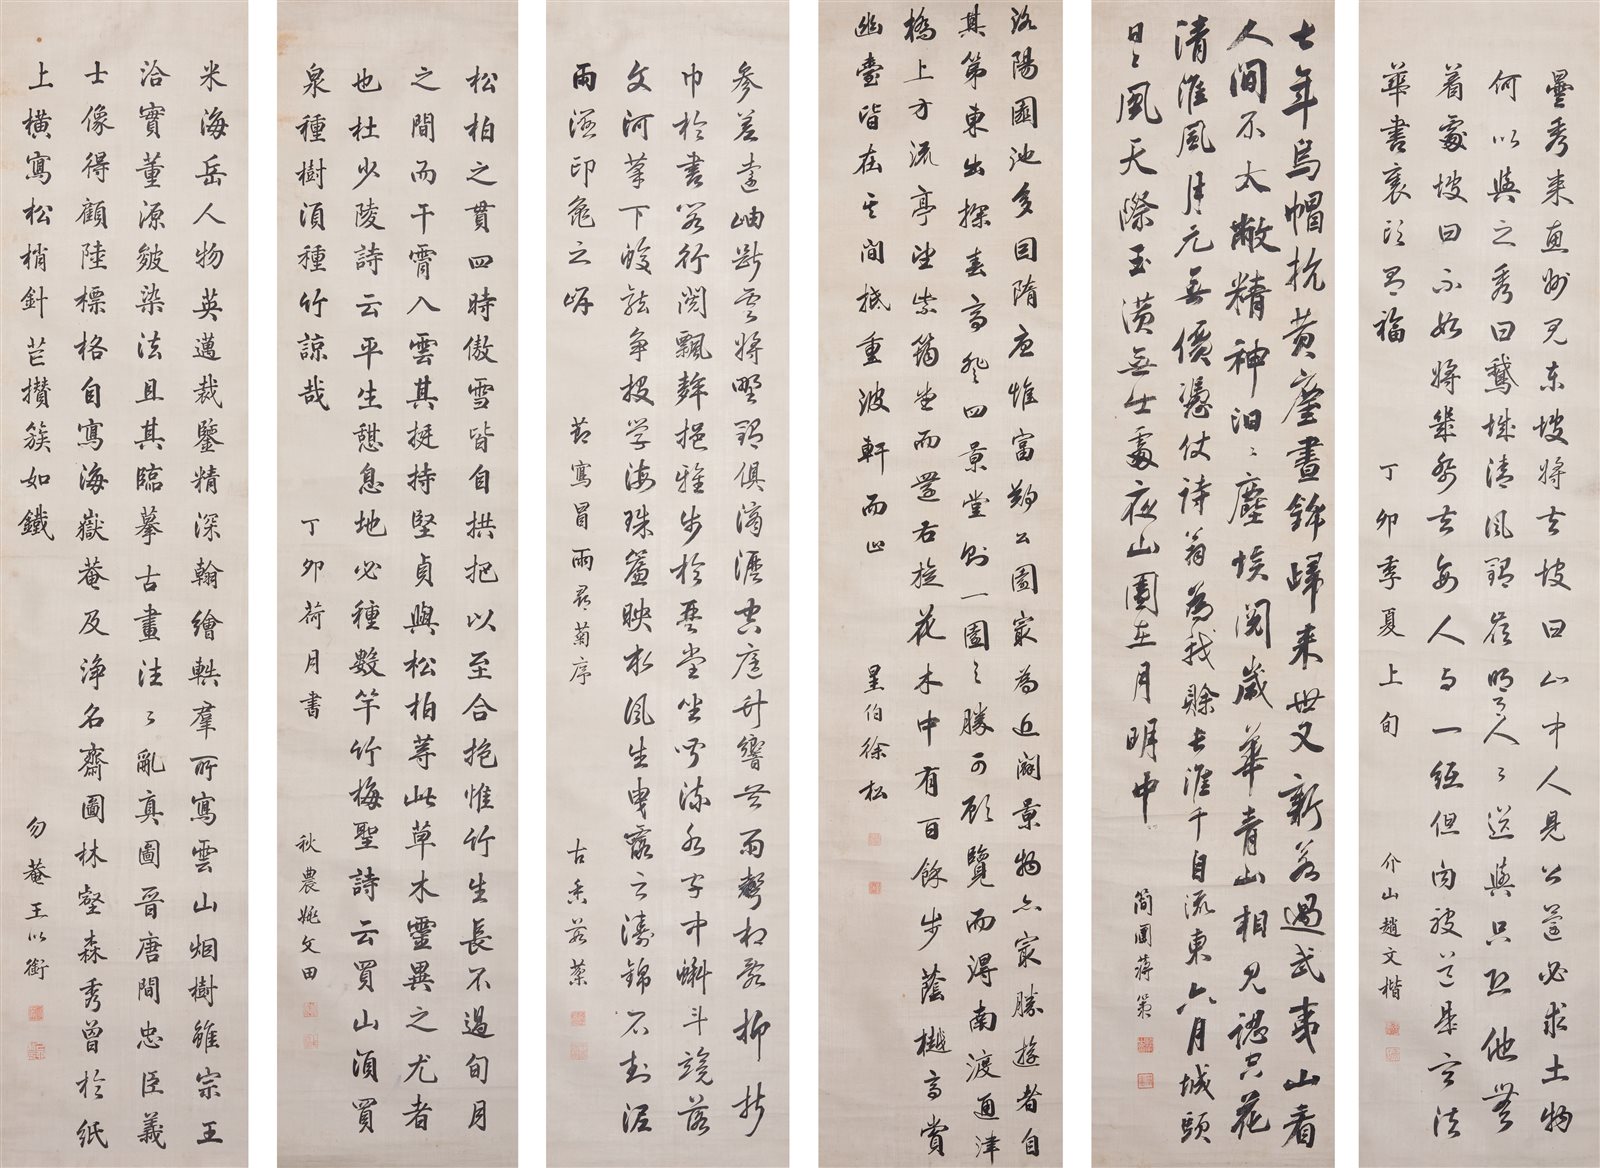 曇秀来惠州見東坡將去坡曰山中人見公還必求土物
何以與之秀曰鵝城清風鶴嶺明月人人送與只恐他無
着處坡曰不如將幾紙去每人与一紙但向彼道是言法
華書裏頭有福 丁卯季夏上旬 介山趙文楷
七年烏帽抗黃塵晝錦歸来世又新若過武夷山看
人間不太敝精神汩汩塵埃閱歲華青山相見認只花
清淮風月元無價憑仗詩翁為我賒長淮千自流東六月城頭
日日風天際玉潢無仕處夜山園在月明中 簡圃蔣第
洛陽園池多因隋唐惟富鄭公園冣為近闢景物亦冣勝遊者自
其第東出探春亭登四景堂則一園之勝可顧覽而得南渡通津
橋上方流亭望紫筠堂而還右旋花木中有百餘步蔭樾亭賞
幽臺皆在其間抵重波軒而止 星伯徐松
參差遠岫斷雲將野鶴俱滴瀝空庭竹響共雨聲相亂柳折
巾於書閣行閱飄蘚挹雅步於琴堂坐聞流水字中蝌斗競落
文河筆下蛟龍爭投學海珠簾映水風生曳露之濤錦石封泥
雨濕印龜之岸 節寫冒雨尋菊序 古香
松柏之貫四時傲雪皆自拱把以至合抱惟竹生長不過旬月
之間而干霄入雲其挺持堅貞與松柏等此草木靈異之尤者
也杜少陵詩云平生憩息地必種數竿竹梅聖詩云買山須買
泉種樹須種竹諒哉 丁卯荷月書 秋農姚文田
米海岳人物英邁裁鑒精深翰繪軼羣所寫雲山烟樹雖宗王
洽實董源皴染法且其臨摹古畫往往亂真圖晉唐間忠臣義
士像得顧陸標格自寫海嶽菴及淨名齋圖林壑森秀曾於紙
上橫寫松梢針芒攢簇如鐵 勿菴王以銜